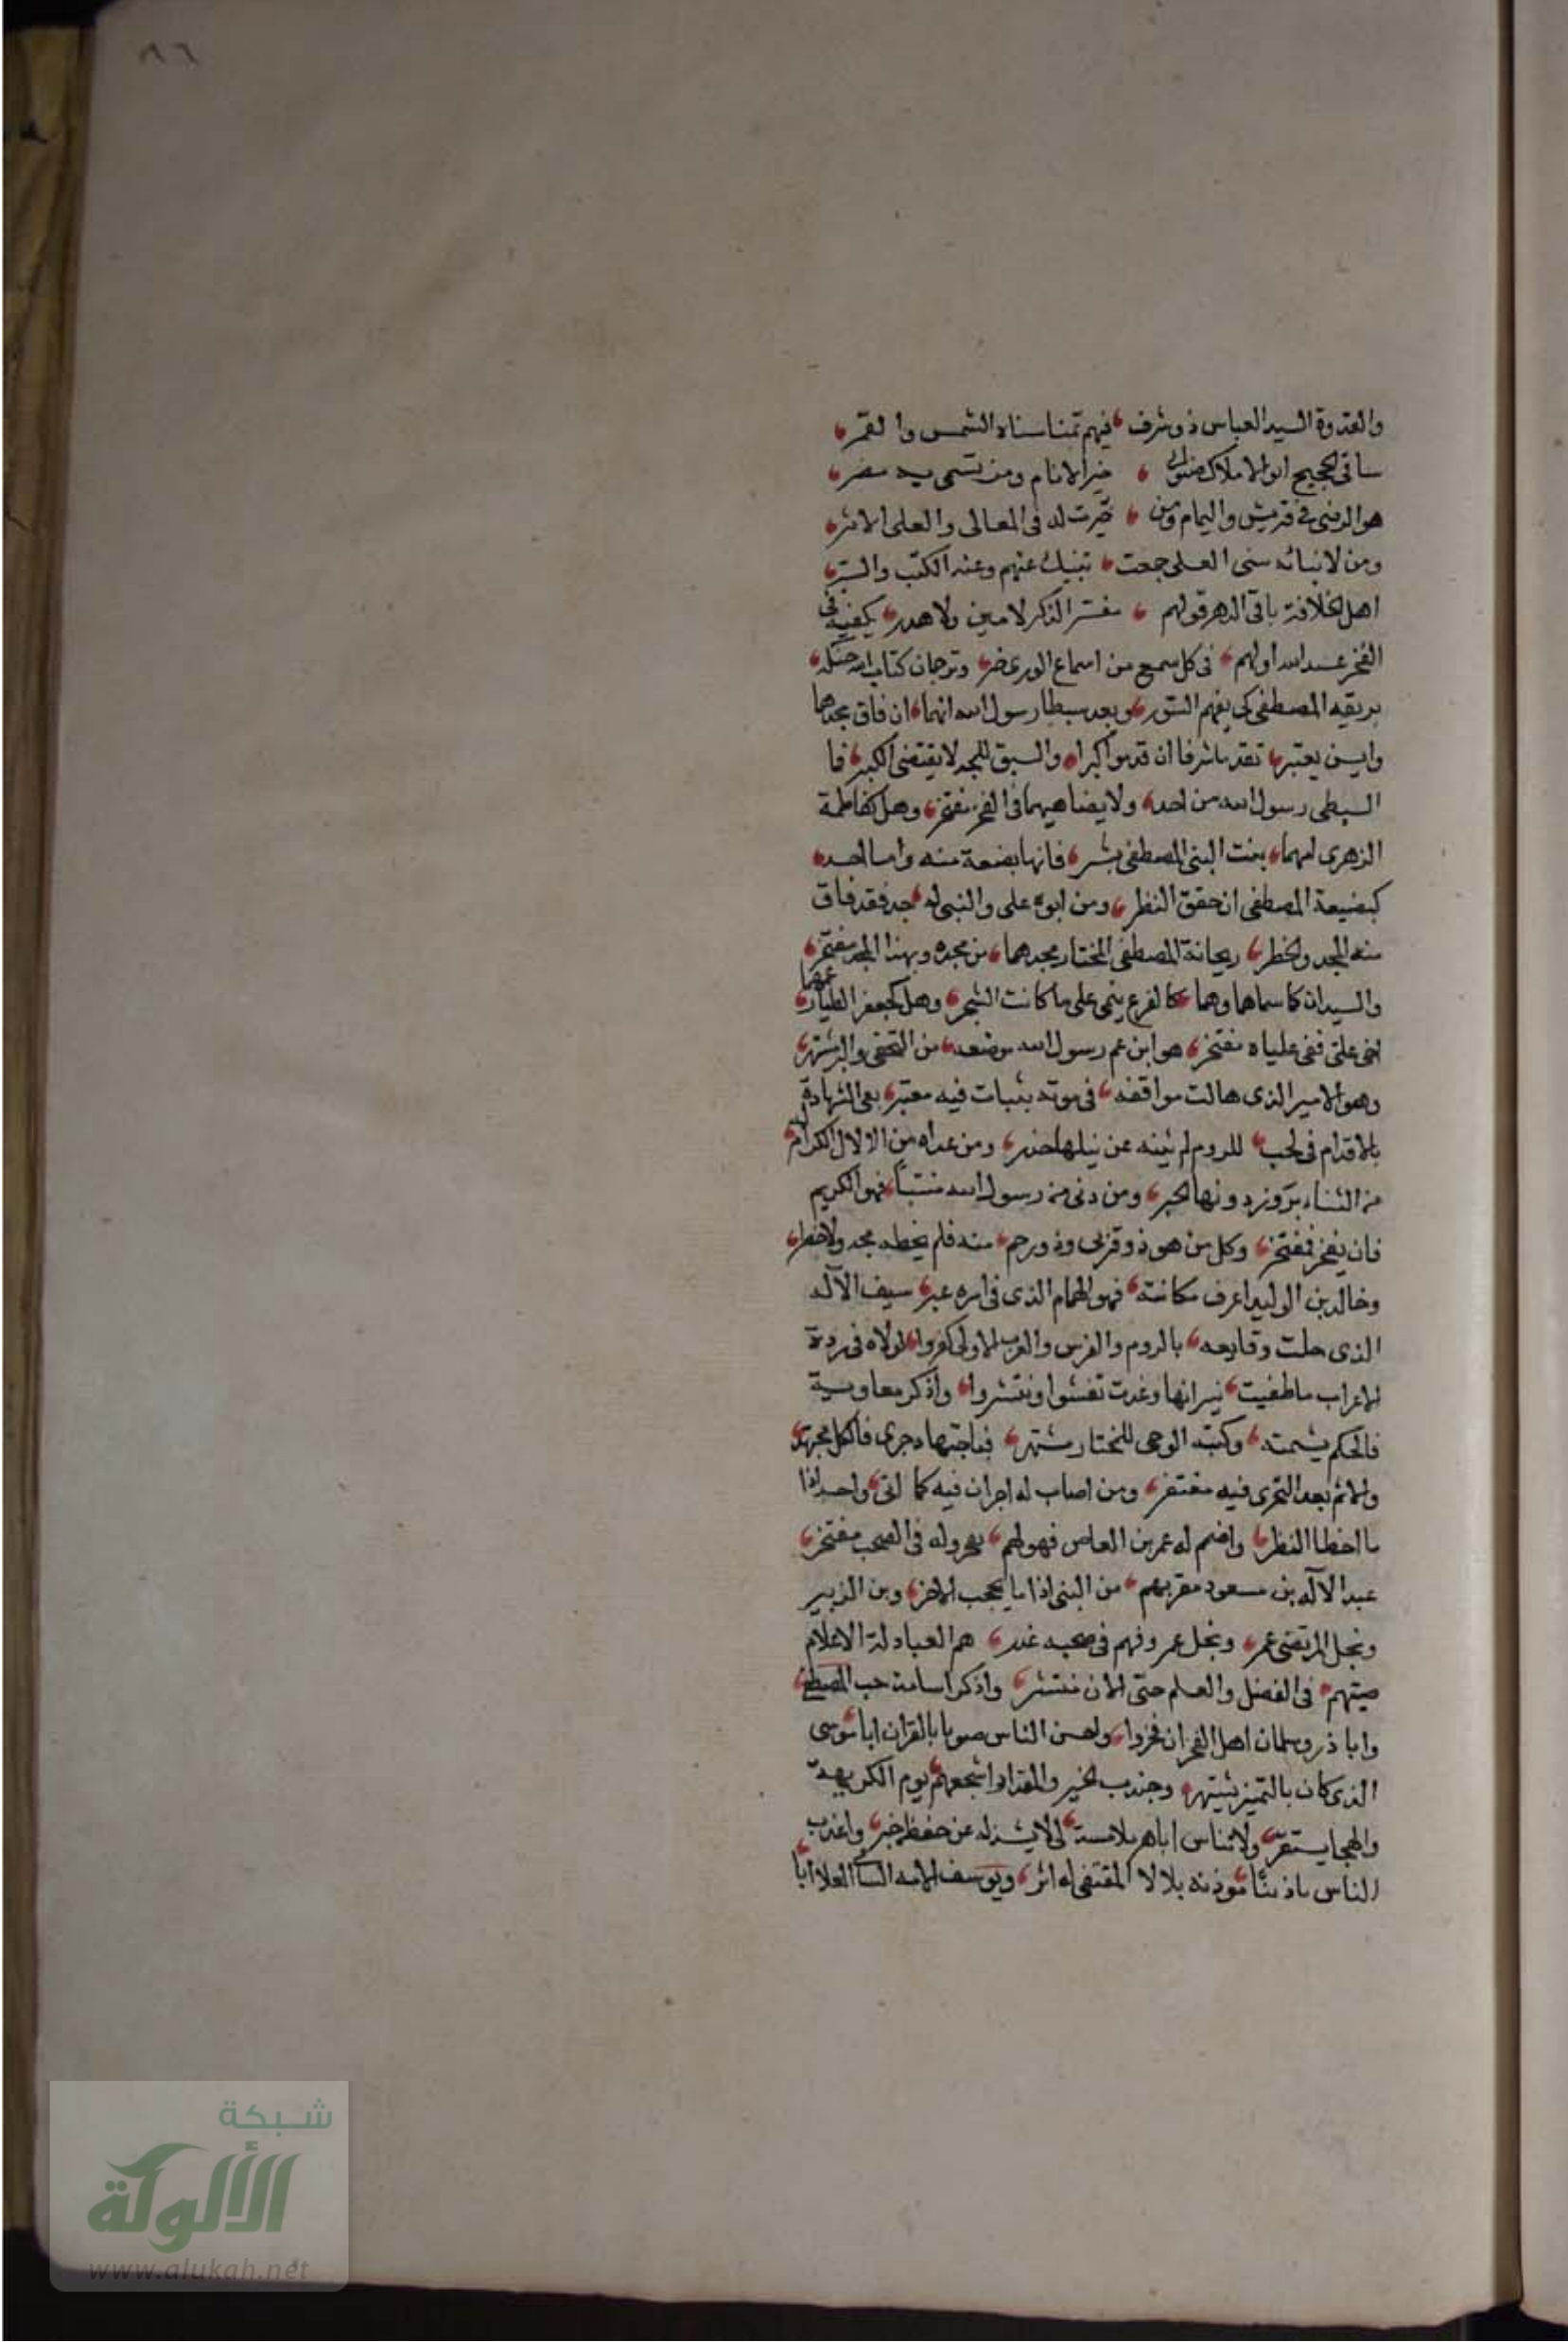 ٨٦
والقدوة السيد العباس ذو شرف فيهم تمنا سناه الشمس والقمر
ساقي الحجيج ابو الاملاك صنو خير الانام ومن تسمى به مضر
هو الرضي في قريش واليمام ومن في المعالي والعلى الاثر
ومن لابنائه سنى العلى جمعت تنبيك عنهم وعنه الكتب والسير
اهل الخلافة باقي الدهر قولهم مفسر الذكر لا مين ولا هدر يكفيه في
الفخر عبد الله اولهم في كل سمع من اسماع الورى وترجمان كتاب الله حنكه
بريقه المصطفى كي يفهم السور وبعد سبطا رسول الله انهما ان فاق مجدهما
وايسن يعتبر تقدما شرفا ان قدموا كبرا والسبق للمجد لا يقتضي الكبر فا
السبطي رسول الله من احد ولا يضاهيهما في الفخر مفتخر وهل كفاطمة
الزهرى امهما بنت النبي المصطفى بشر فانها بضعة منه وما احد
كبضيعة المصطفى ان حقق النظر ومن ابوه علي والنبي له جد فقد فاق
منه المجد والخطر ريحانة المصطفى المختار مجدهما من مجده وبهذا المجد مفتخر
والسيدان كما سماهما وهما كالفرع ينمى على ما كانت الشجر وهل كجعفر الطيار عمهما
اخي علي ففي علياه مفتخر هو ابن عم رسول الله موضعه من التحفي والبر مشتهر
وهو الامير الذي هالت مواقفه في موته بثبات فيه معتبر بغى الشهادة
بالاقدام في لجب للروم لم يثنه عن نيلها حذر ومن عداه من الال الكرام له
من الثناء برود دونها الحبر ومن دنى من رسول الله منتسبا فهو الكريم
فان يفخر فمفتخر وكل من هو ذو قربى وذو رحم منه فلم يخطه مجد ولا خطر
وخالد بن الوليد اعرف مكانته فهو الهمام الذي في امره عبر سيف الآله
الذي جلت وقايعه بالروم والفرس والعرب الاولى كفروا لولاه في ردة
الاعراب ما طفيت نيرانها وغدت تفشوا وتنتشروا واذكر معاوية
فالحكم شيمته وكتبه الوحي للمختار مشتهر فيا جرى فالكل مجتهد
والاثم بعد التحري فيه مغتفر ومن اصاب له اجران فيه كما اتى واحد اذا
ما اخطا النظر واضمم له عمر بن العاص فهو لهم يعزو له في الصحب مفتخر
عبد الآله بن مسعود مقربهم من النبي اذا ما يحجب الاخر وبن الزبير
ونجل المرتضى عمر ونجل عمرو فهم في صحبه غرر هم العبادلة الاعلام
صيتهم في الفضل والعلم حتى الان منتشر واذكر اسامة حب المصطفى
وابا ذر وسلمان اهل الفخر ان فخروا واحسن الناس صوتا بالقران ابا موسى
الذي كان بالتميز يشتهر وجندب الخير والمقداد اشجعهم يوم الكريهة
والهيجا يستعر ولا تناس اباهر ملامسة لي لا يشذ له عن حفظ خبر واعذب
الناس تاذينا مؤذنه بلالا المقتفى له اثر العلا ابا
شبكة
الألوكة
www.alukah.net